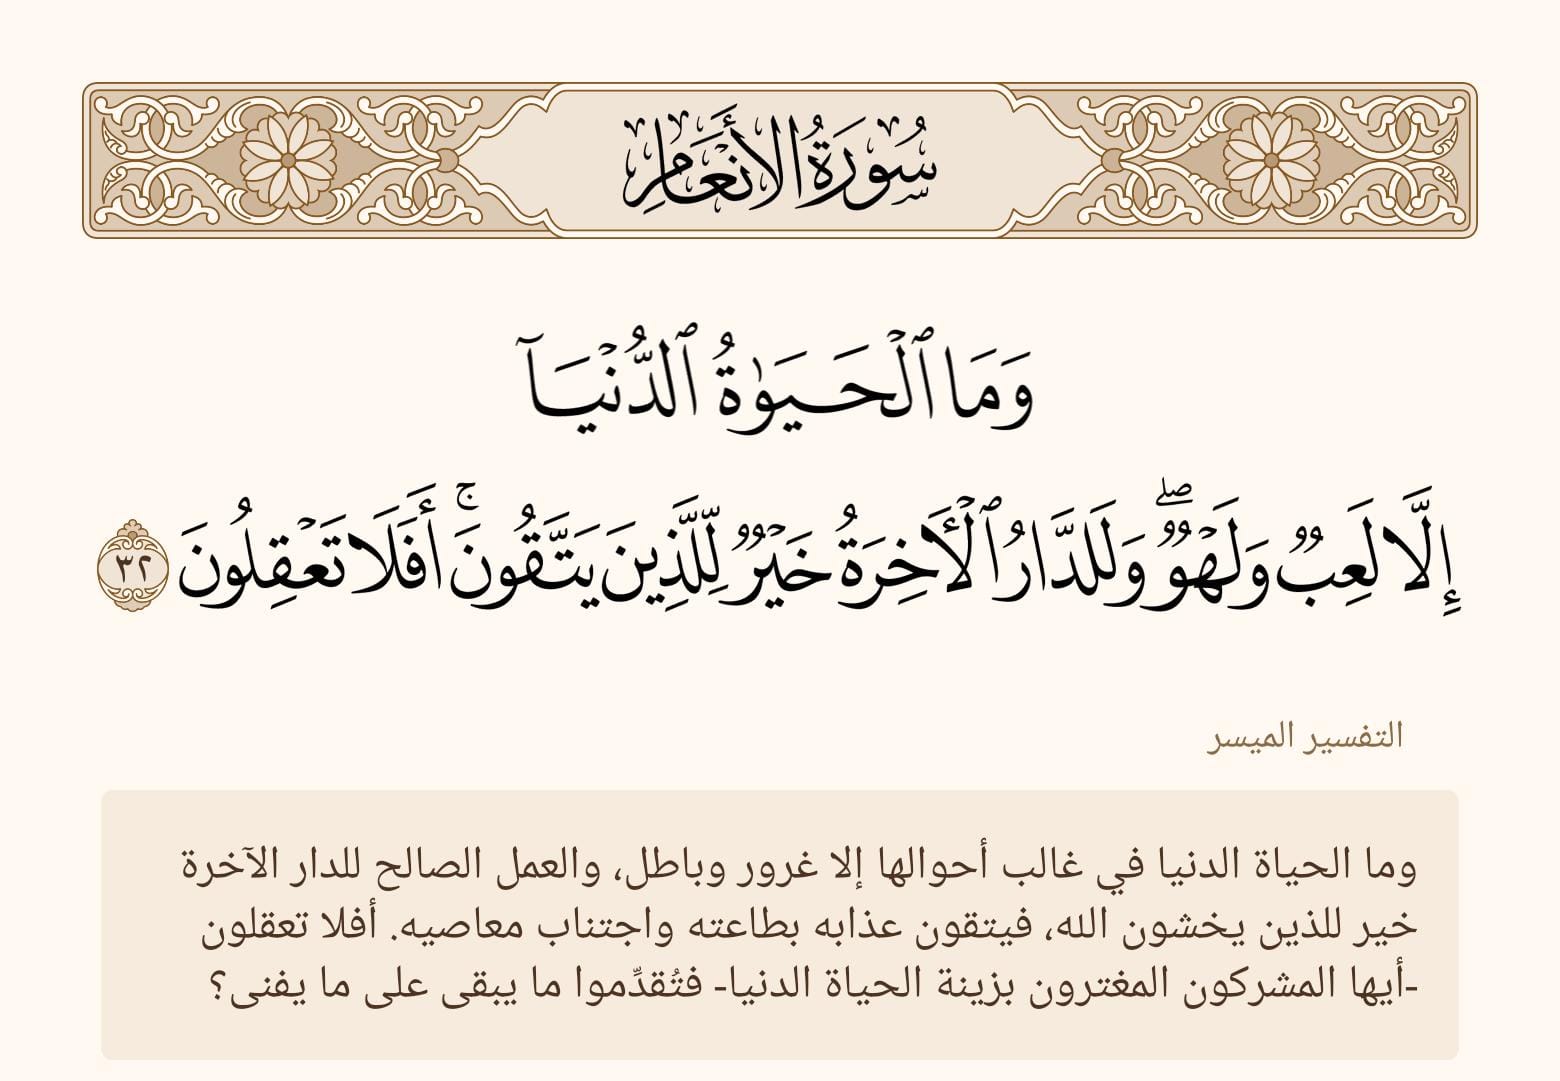 سُورَةُ الأَنْعَامِ
وَمَا ٱلْحَيَوٰةُ ٱلدُّنْيَآ
إِلَّا لَعِبٌ وَلَهْوٌ ۖ وَلَلدَّارُ ٱلْـَٔاخِرَةُ خَيْرٌ لِّلَّذِينَ يَتَّقُونَ ۚ أَفَلَا تَعْقِلُونَ ٣٢
التفسير الميسر
وما الحياة الدنيا في غالب أحوالها إلا غرور وباطل، والعمل الصالح للدار الآخرة
خير للذين يخشون الله، فيتقون عذابه بطاعته واجتناب معاصيه. أفلا تعقلون
-أيها المشركون المغترون بزينة الحياة الدنيا- فتُقدِّموا ما يبقى على ما يفنى؟